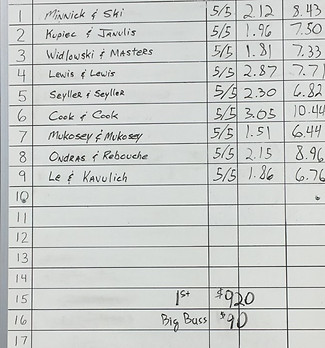 1 Minnick & Ski 5/5 2.12 8.43
2 Kupiec & Janulis 5/5 1.96 7.50
3 Widlowski & Masters 5/5 1.81 7.33
4 Lewis & Lewis 5/5 2.87 7.71
5 Seyller & Seyller 5/5 2.30 6.82
6 Cook & Cook 5/5 3.05 10.44
7 Mukosey & Mukosey 5/5 1.51 6.44
8 Ondras & Rebouche 5/5 2.15 8.96
9 Le & Kavulich 5/5 1.86 6.76
10
11
12
13
14
15 1st $920
16 Big Bass $90
17